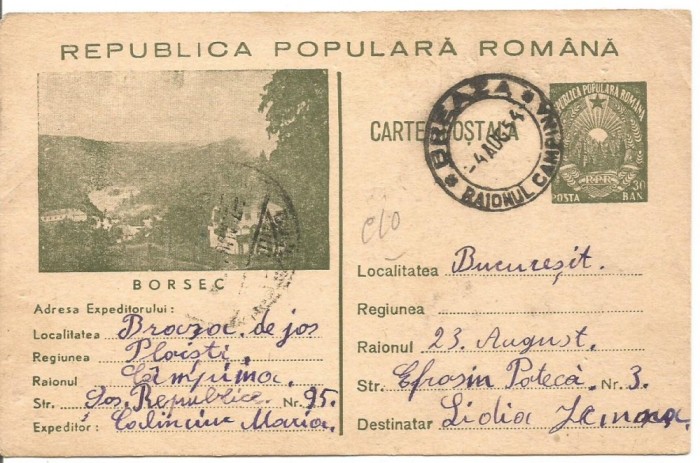 REPUBLICA POPULARĂ ROMÂNĂ
BORSEC
Adresa Expeditorului:
Localitatea Breaza de jos
Regiunea Ploiști.
Raionul Câmpina.
Str. Șos. Republice. Nr. 95.
Expeditor: Maria.
CARTE POȘTALĂ
BREAZA
-4 AUG. 54
RAIONUL CAMPINA
REPUBLICA POPULARA ROMÂNĂ
RPR
POSTA 30 BANI
Localitatea Bucureșit.
Regiunea
Raionul 23. August.
Str. Efrosin Potecă. Nr. 3.
Destinatar Lidia